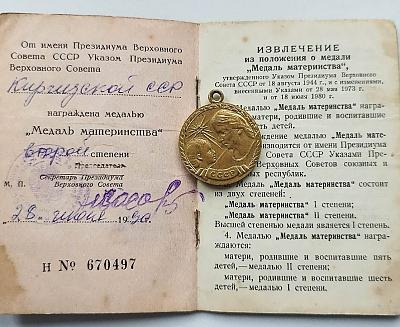 От имени Президиума Верховного
Совета СССР Указом Президиума
Верховного Совета
Киргизской ССР
награждена медалью
„Медаль материнства“
второй степени
Секретарь Президиума
Верховного Совета
М. П.
28 1990
Н № 670497
ИЗВЛЕЧЕНИЕ
из положения о медали
„Медаль материнства“,
утвержденного Указом Президиума Верховного
Совета СССР от 18 августа 1944 г., и с изменениями,
внесенными Указами от 28 мая 1973 г.
и от 18 июня 1980 г.
Медалью „Медаль материнства“ награ-
матери, родившие и воспитавшие
детей.
награждение медалью „Медаль мате-
производится от имени Президиума
Совета СССР Указами Пре-
Верховных Советов союзных и
республик.
„Медаль материнства“ состоит
из двух степеней:
„Медаль материнства“ I степени;
„Медаль материнства“ II степени.
Высшей степенью медали является I степень.
4. Медалью „Медаль материнства“ на-
граждаются:
матери, родившие и воспитавшие пять
детей,—медалью II степени;
матери, родившие и воспитавшие шесть
детей,—медалью I степени.
СССР